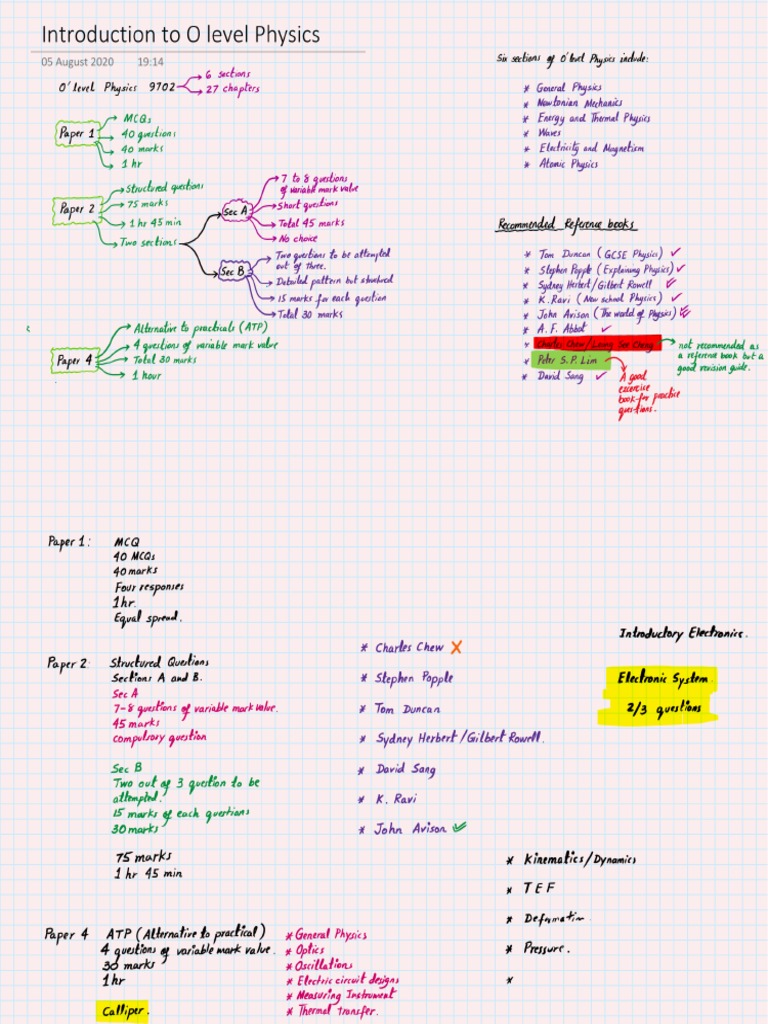 Introduction to O level Physics
05 August 2020 19:14
O'level Physics 9702
6 sections
27 chapters
Paper 1
MCQs
40 questions
40 marks
1 hr
Paper 2
Structured questions
75 marks
1 hr 45 min
Two sections
Sec A
7 to 8 questions
of variable mark value
Short questions
Total 45 marks
No choice
Sec B
Two questions to be attempted
out of three.
Detailed pattern but structured
15 marks for each question
Total 30 marks
Paper 4
Alternative to practicals (ATP)
4 questions of variable mark value
Total 30 marks
1 hour
Six sections of O'level Physics include:
* General Physics
* Newtonian Mechanics
* Energy and Thermal Physics
* Waves
* Electricity and Magnetism
* Atomic Physics
Recommended Reference books
* Tom Duncan (GCSE Physics) ✓
* Stephen Popple (Explaining Physics) ✓
* Sydney Herbert/Gilbert Rowell ✓
* K. Ravi (New school Physics) ✓
* John Avison (The world of Physics) ✓
* A. F. Abbot ✓
* Charles Chew/Leong See Cheng
not recommended as
a reference book but a
good revision guide.
* Peter S.P. Lim
A good
excercise
book for practice
questions.
* David Sang ✓
Paper 1: MCQ
40 MCQs
40 marks
Four responses
1hr.
Equal spread.
Paper 2: Structured Questions
Sections A and B.
Sec A
7-8 questions of variable mark value.
45 marks
compulsry question
Sec B
Two out of 3 question to be
attempted.
15 marks of each questions
30 marks
75 marks
1 hr 45 min
* Charles Chew X
* Stephen Popple
* Tom Duncan
* Sydney Herbert/Gilbert Rowell.
* David Sang
* K. Ravi
* John Avison ✓
Introductory Electronics.
Electronic System.
2/3 questions
* Kinematics/Dynamics
* TEF
* Deformation.
* Pressure.
*
Paper 4 ATP (Alternative to practical)
4 questions of variable mark value.
30 marks
1hr
Calliper.
* General Physics
* Optics
* Oscillations
* Electric circuit designs
* Measuring Instrument
* Thermal transfer.